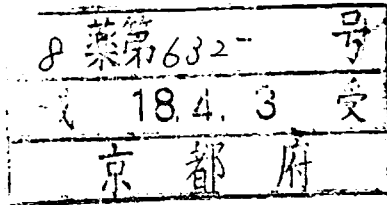 8薬第632号
18.4.3受
京都府